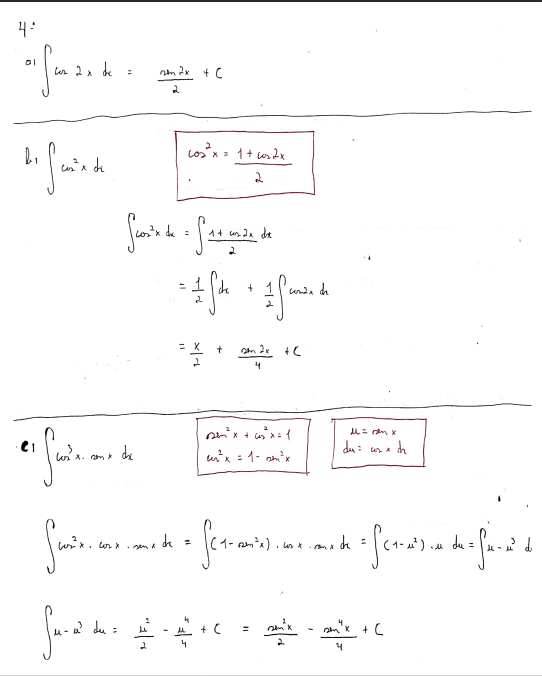 4-
a) ∫ cos 2x dx = sen 2x / 2 + C
b) ∫ cos² x dx
cos² x = (1 + cos 2x) / 2
∫ cos² x dx = ∫ (1 + cos 2x) / 2 dx
= 1/2 ∫ dx + 1/2 ∫ cos 2x dx
= x/2 + sen 2x / 4 + C
c) ∫ cos³ x · sen x dx
sen² x + cos² x = 1
cos² x = 1 - sen² x
u = sen x
du = cos x dx
∫ cos² x · cos x · sen x dx = ∫ (1 - sen² x) · cos x · sen x dx = ∫ (1 - u²) · u du = ∫ u - u³ d
∫ u - u³ du = u²/2 - u⁴/4 + C = sen² x / 2 - sen⁴ x / 4 + C